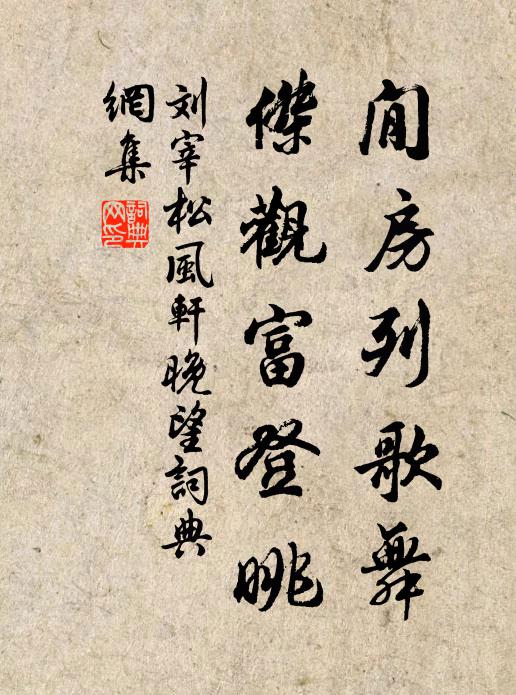 閒房列歌舞
傑觀富登眺
刘宰松風軒晚望詞典
網集
詞典網印